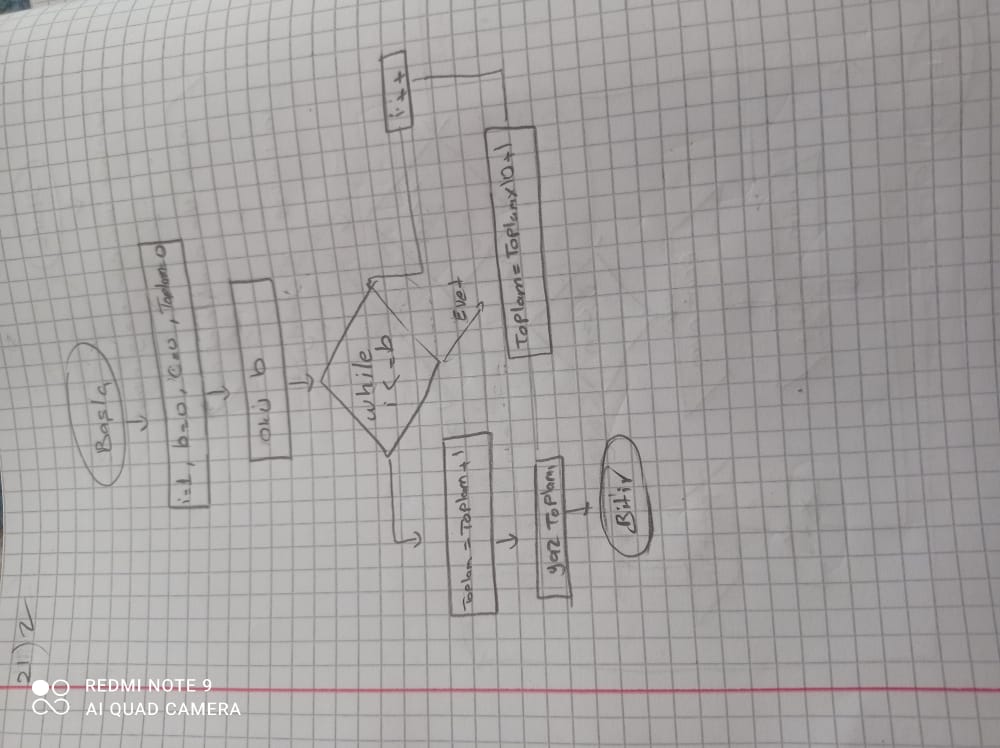 21)2
Başla
i=1, b=0, c=0, Toplam=0
oku b
while
i<=b
i++
Evet
Toplam=Toplam×10+1
Toplam=Toplam+1
yaz Toplam
Bitir
REDMI NOTE 9
AI QUAD CAMERA